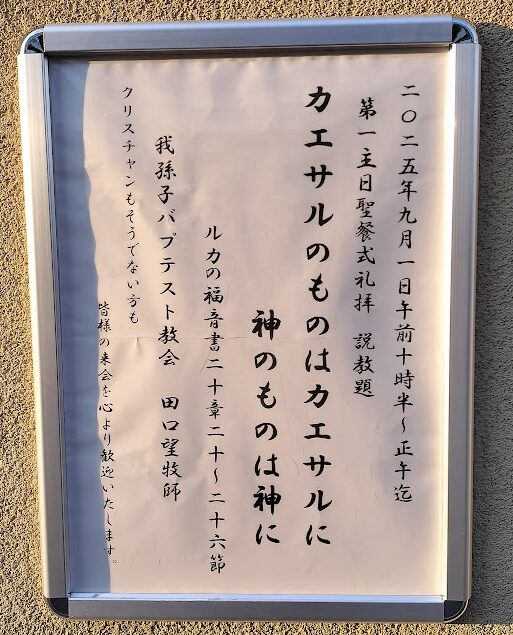 二〇二五年九月一日午前十時半~正午迄
第一主日聖餐式礼拝 説教題
カエサルのものはカエサルに
神のものは神に
ルカの福音書二十章二十~二十六節
我孫子バプテスト教会 田口望牧師
クリスチャンもそうでない方も
皆様の来会を心より歓迎いたします。